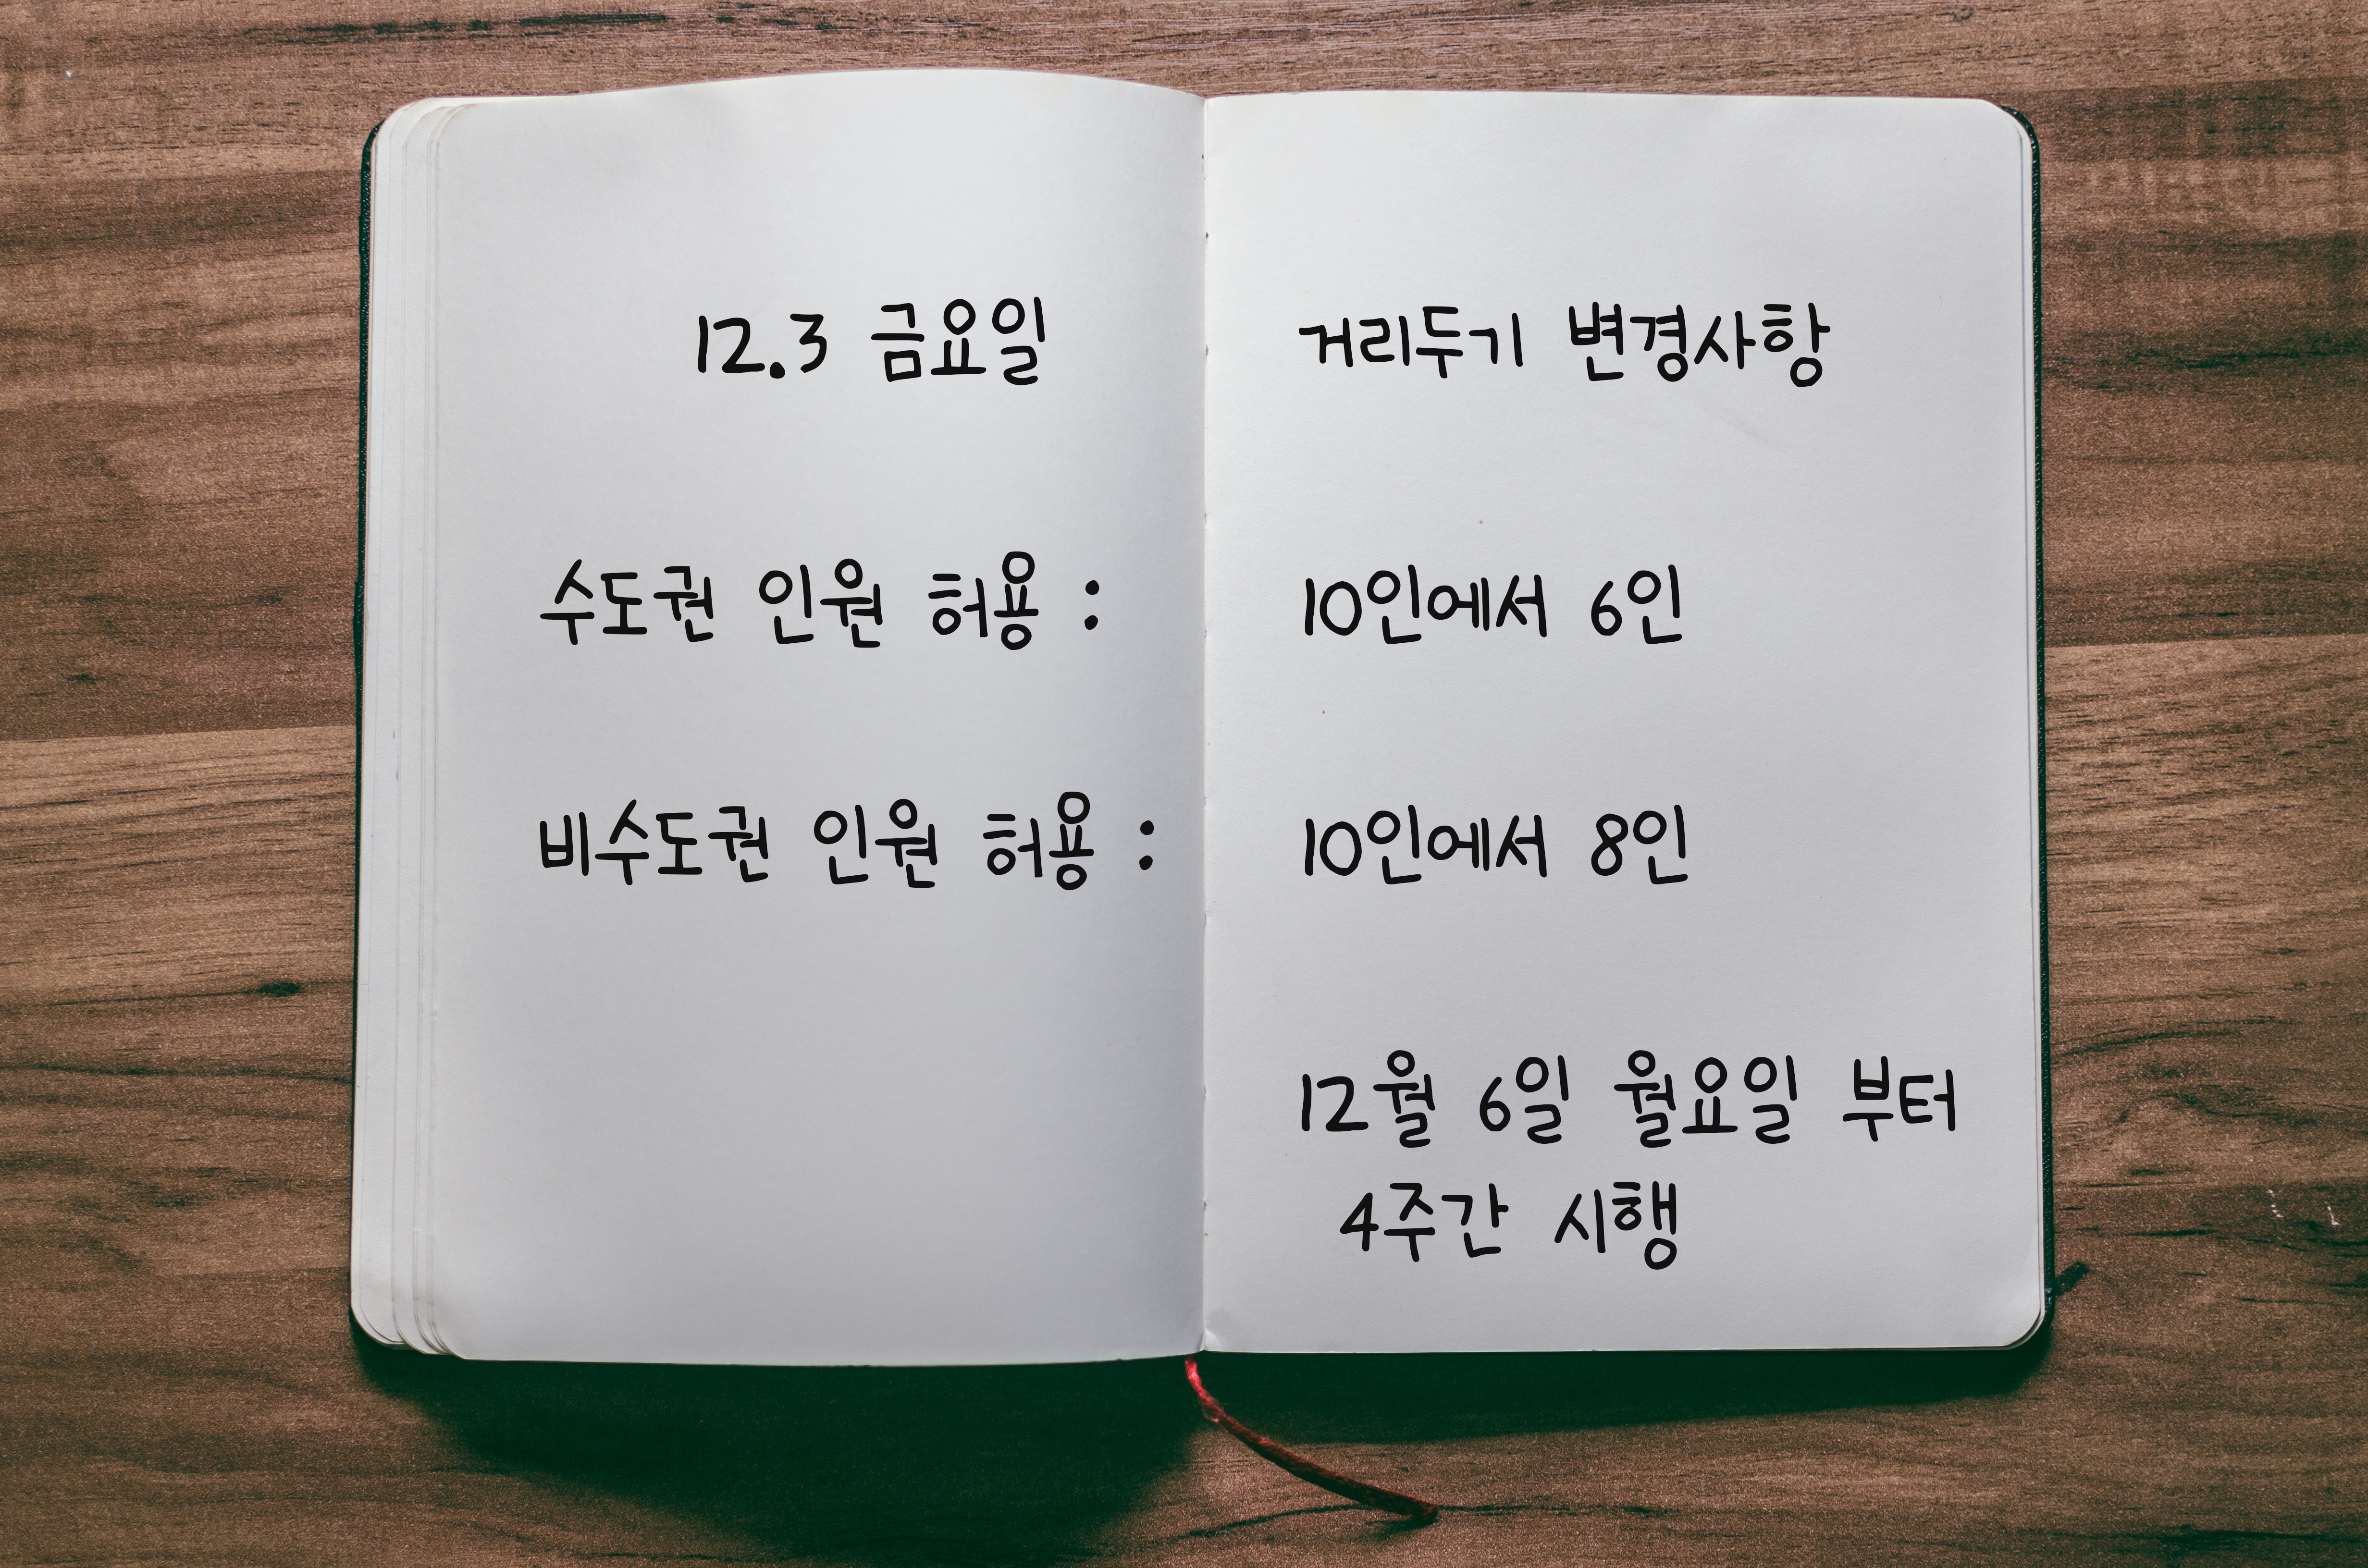 12.3 금요일
수도권 인원 허용 :
비수도권 인원 허용 :
거리두기 변경사항
10인에서 6인
10인에서 8인
12월 6일 월요일 부터
4주간 시행